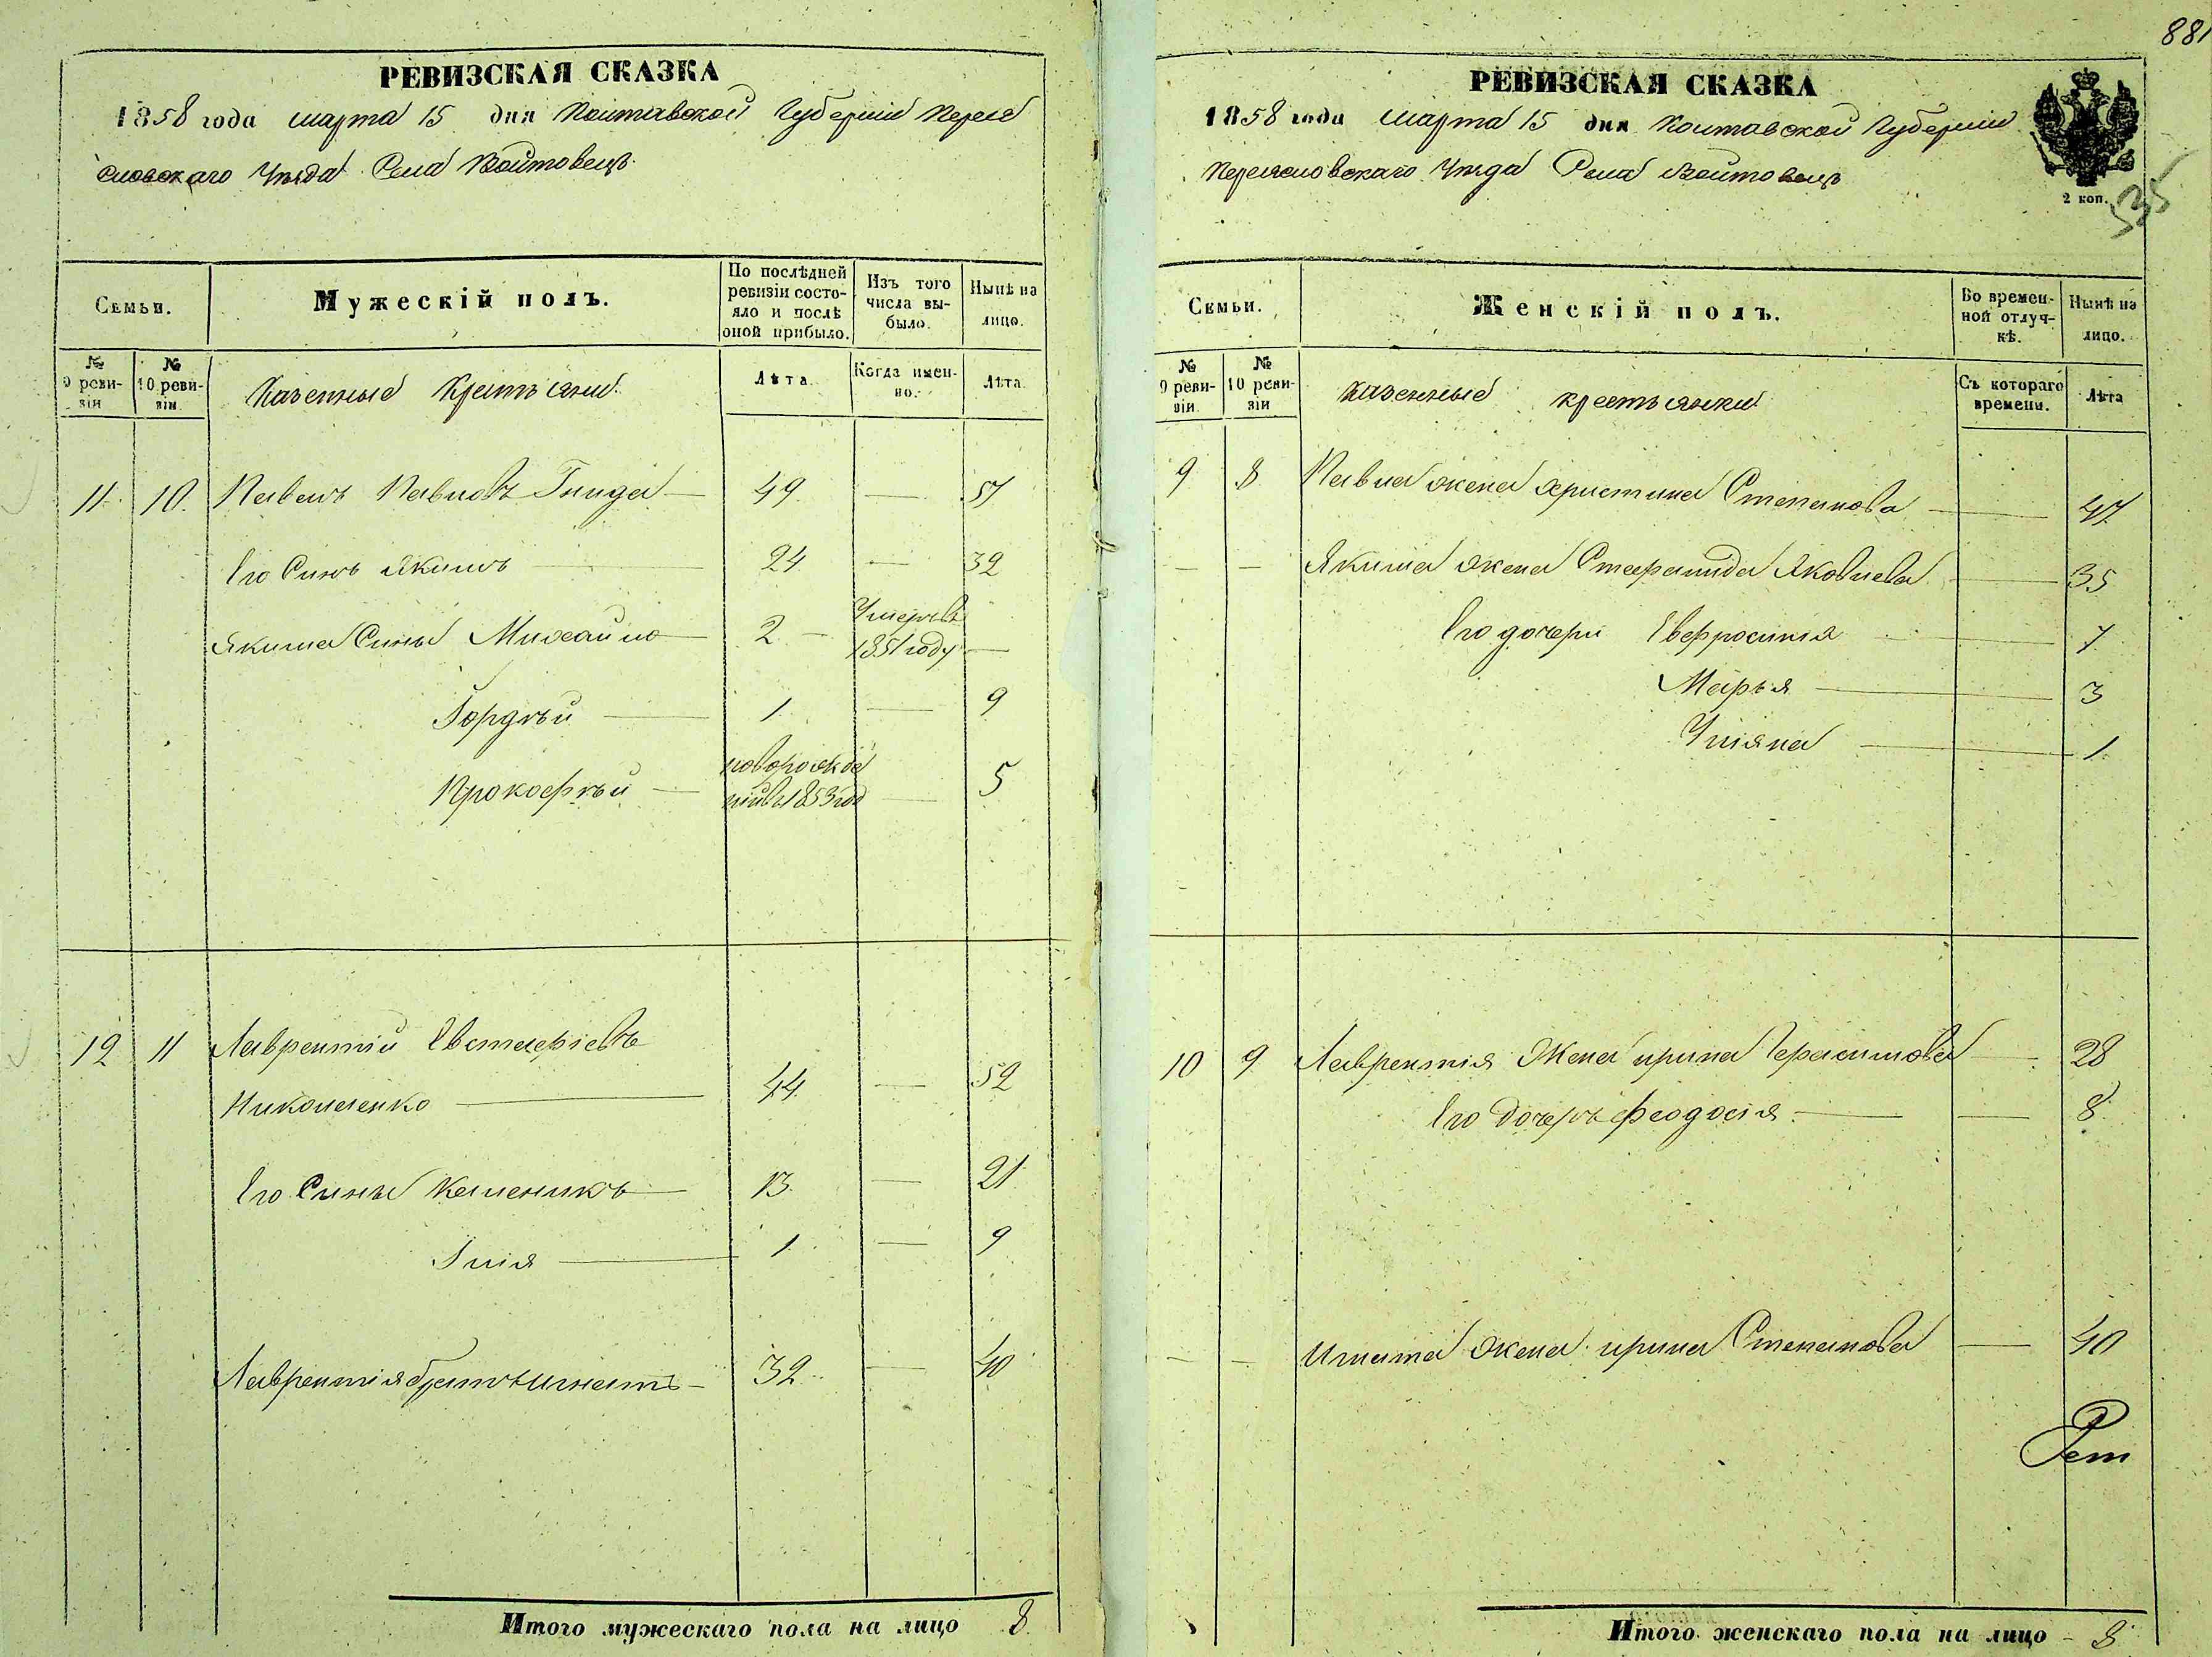 РЕВИЗСКАЯ СКАЗКА
1858 года марта 15 дня Полтавской Губернии Перея
словского Уѣзда Села Войтовецъ
Семьи.
Мужескій полъ.
По послѣдней ревизіи состо-
яло и послѣ оной прибыло.
Изъ того числа вы-
было.
Нынѣ на лицо.
№ 9 реви-
зіи
№ 10 реви-
зіи
Казенные Крестьяни
Лѣта.
Когда имен-
но.
Лѣта.
11. 10. Павелъ Павловъ Гнида 49 — 57
Его Синъ Якимъ 24 — 32
Якима Сины Михайло 2 Умеръ въ 1851 году —
Гордѣй 1 — 9
Прокофѣй новорожде
ній въ 1853 год — 5
12 11 Лаврентій Евстафіевъ
Николаенко 44 — 52
Его Сины Каленикъ 13 — 21
Ілія 1 — 9
Лаврентія братъ Игнатъ 32 — 40
Итого мужескаго пола на лицо 8
881
РЕВИЗСКАЯ СКАЗКА
1858 года марта 15 дня Полтавской Губернии
Переясловскаго Уѣзда Села Войтовецъ
2 коп.
535
Семьи.
Женскій полъ.
Во времен-
ной отлуч-
кѣ.
Нынѣ на лицо.
№ 9 реви-
зіи.
№ 10 реви-
зіи
Казенные крестьянки
Съ котораго времени.
Лѣта
9 8 Павла жена Христина Степанова — 47
— — Якима жена Стефанида Яковлева — 35
Его дочери Евфросинія — 7
Марья — 3
Уліяна — 1
10 9 Лаврентія Жена ирина Герасимова — 28
Его Дочеръ Феодосія — 8
— — Игната жена ирина Степанова — 40
Итого женскаго пола на лицо - 8